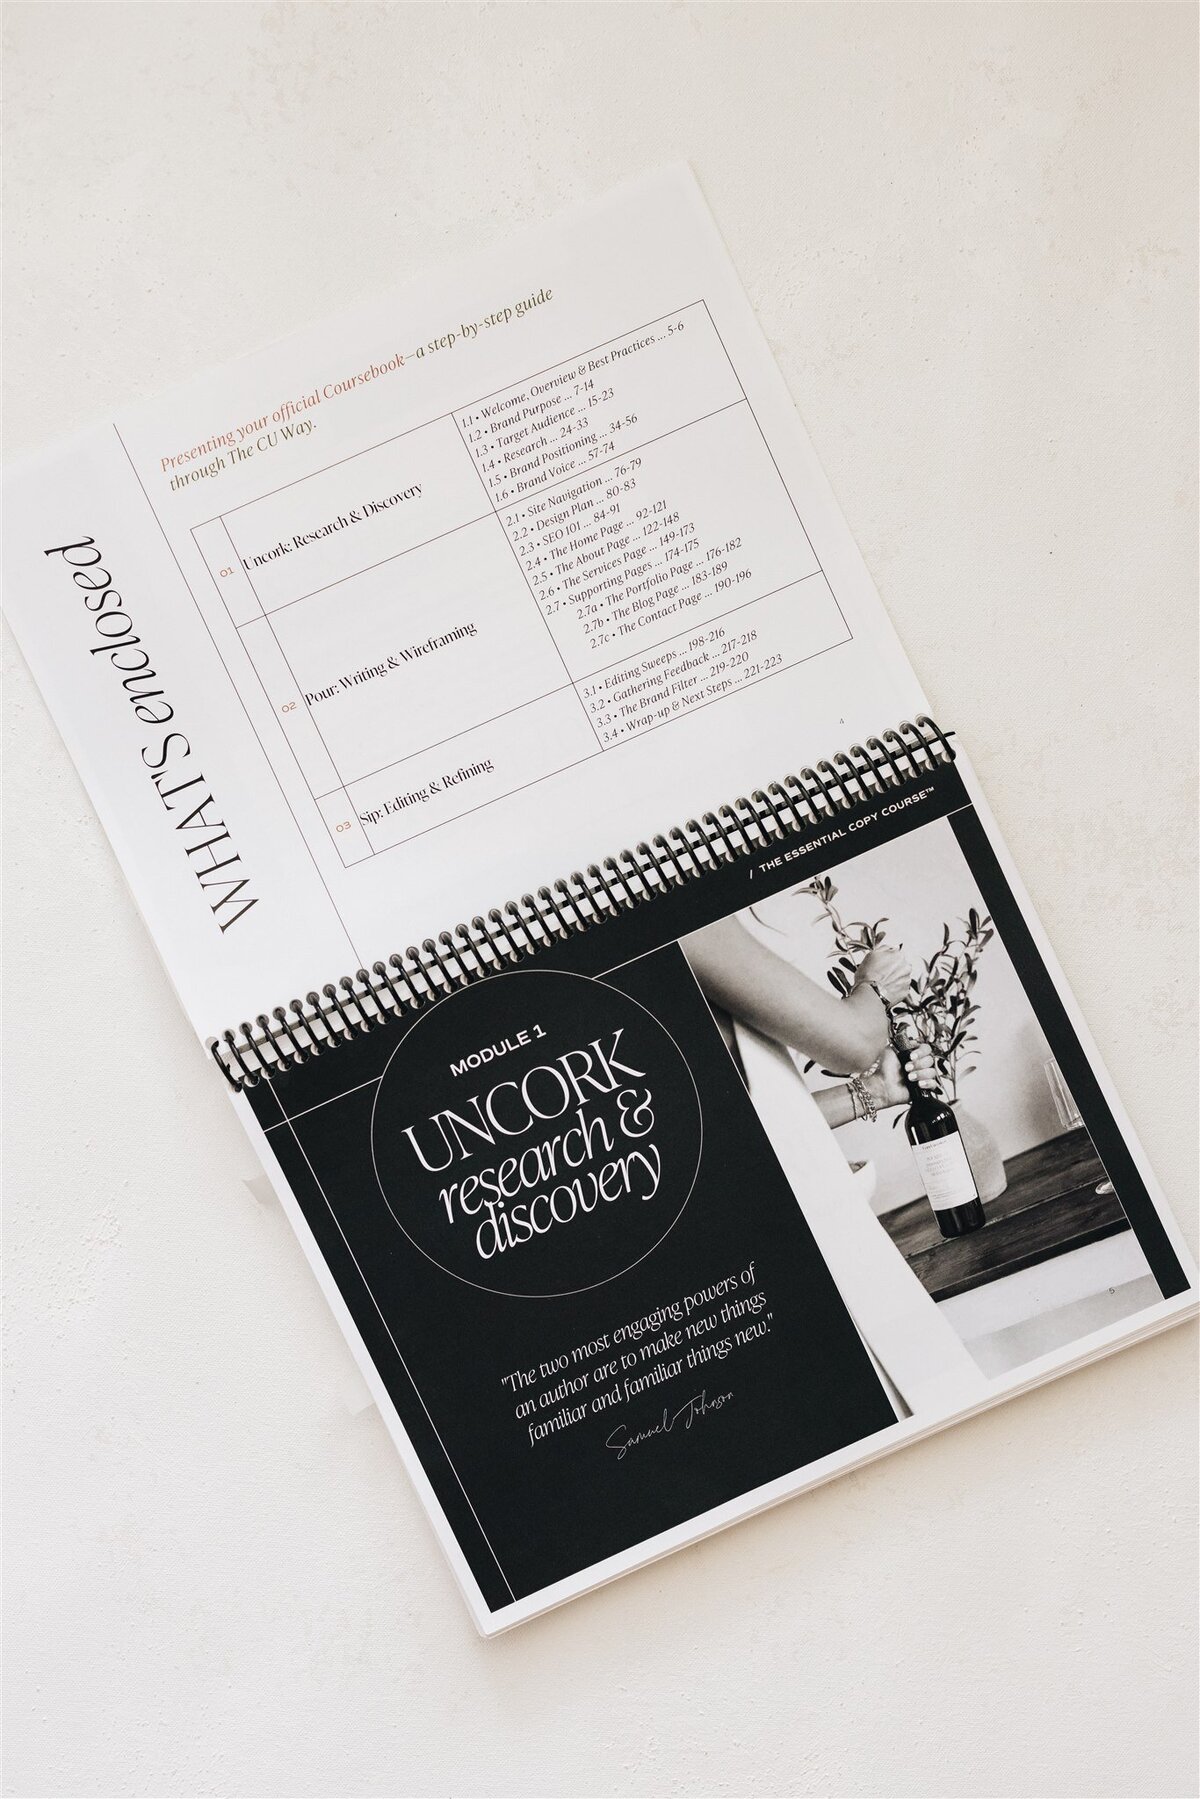 WHAT'S enclosed
Presenting your official Coursebook—a step-by-step guide
through The CU Way.
01
Uncork: Research & Discovery
1.1 • Welcome, Overview & Best Practices ... 5-6
1.2 • Brand Purpose ... 7-14
1.3 • Target Audience ... 15-23
1.4 • Research ... 24-33
1.5 • Brand Positioning ... 34-56
1.6 • Brand Voice ... 57-74
02
Pour: Writing & Wireframing
2.1 • Site Navigation ... 76-79
2.2 • Design Plan ... 80-83
2.3 • SEO 101 ... 84-91
2.4 • The Home Page ... 92-121
2.5 • The About Page ... 122-148
2.6 • The Services Page ... 149-173
2.7 • Supporting Pages ... 174-175
2.7a • The Portfolio Page ... 176-182
2.7b • The Blog Page ... 183-189
2.7c • The Contact Page ... 190-196
03
Sip: Editing & Refining
3.1 • Editing Sweeps ... 198-216
3.2 • Gathering Feedback ... 217-218
3.3 • The Brand Filter ... 219-220
3.4 • Wrap-up & Next Steps ... 221-223
4
/ THE ESSENTIAL COPY COURSE™
MODULE 1
UNCORK
research &
discovery
"The two most engaging powers of
an author are to make new things
familiar and familiar things new."
Samuel Johnson
5